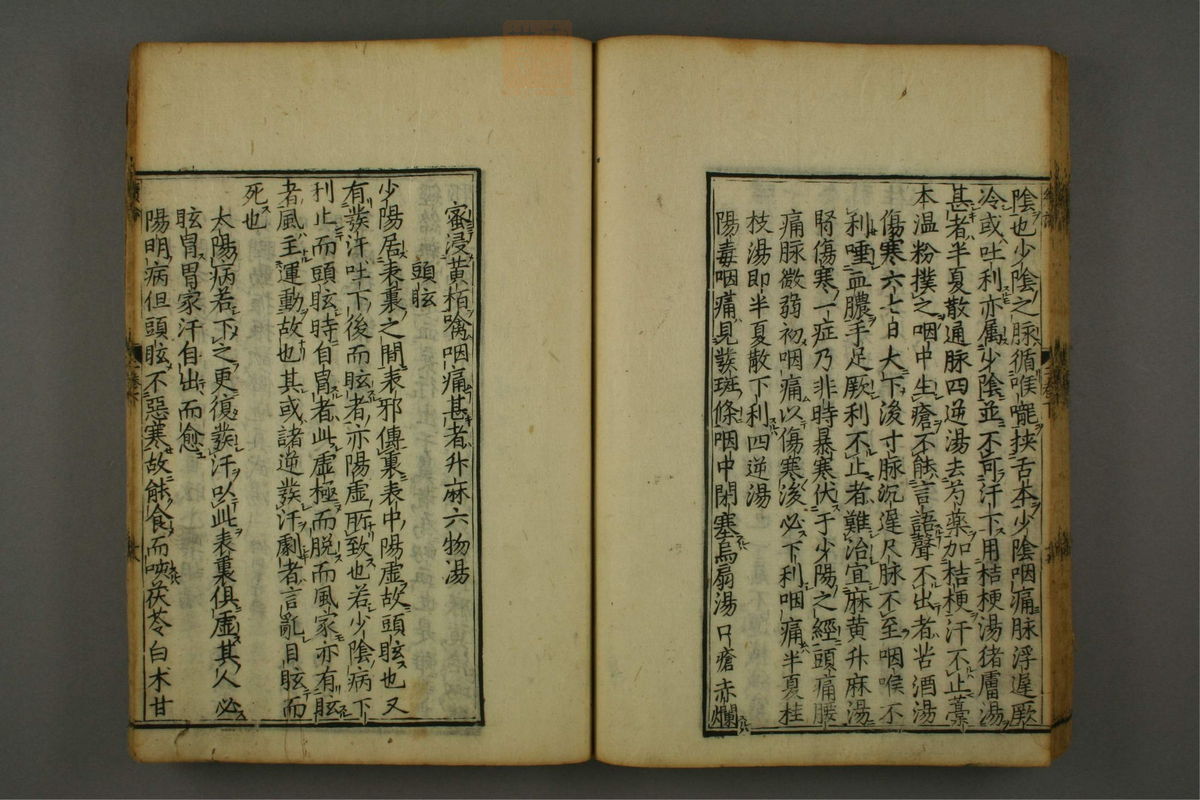 陰也少陰之脉循喉嚨挾舌本少陰咽痛脉浮遲厥
冷或吐利亦属少陰並不可汗下用桔梗湯猪膚湯
甚者半夏散通脉四逆湯去芍藥加桔梗汗不止藁
本温粉撲之咽中生瘡不能言語聲不出者苦酒湯
傷寒六七日大下後寸脉沉遲尺脉不至咽喉不
利唾血膿手足厥利不止者難治宜麻黄升麻湯
腎傷寒一症乃非時暴寒伏于少陽之經頭痛腰
痛脉微弱初咽痛以傷寒後必下利咽痛半夏桂
枝湯即半夏散下利四逆湯
陽毒咽痛見發斑條咽中閉塞烏扇湯口瘡赤爛
蜜浸黄栢噙咽痛甚者升麻六物湯
頭眩
少陽居表裏之間表邪傳裏表中陽虚故頭眩也又
有發汗吐下後而眩者亦陽虚所致也若少陰病下
利止而頭眩時自冐者此虚極而脱而風家亦有眩
者風主運動故也其或諸逆發汗劇者言亂目眩而
死也
太陽病若下之更復發汗以此表裏俱虚其人必
眩冐冐家汗自出而愈
陽明病但頭眩不惡寒故能食而咳茯苓白术甘